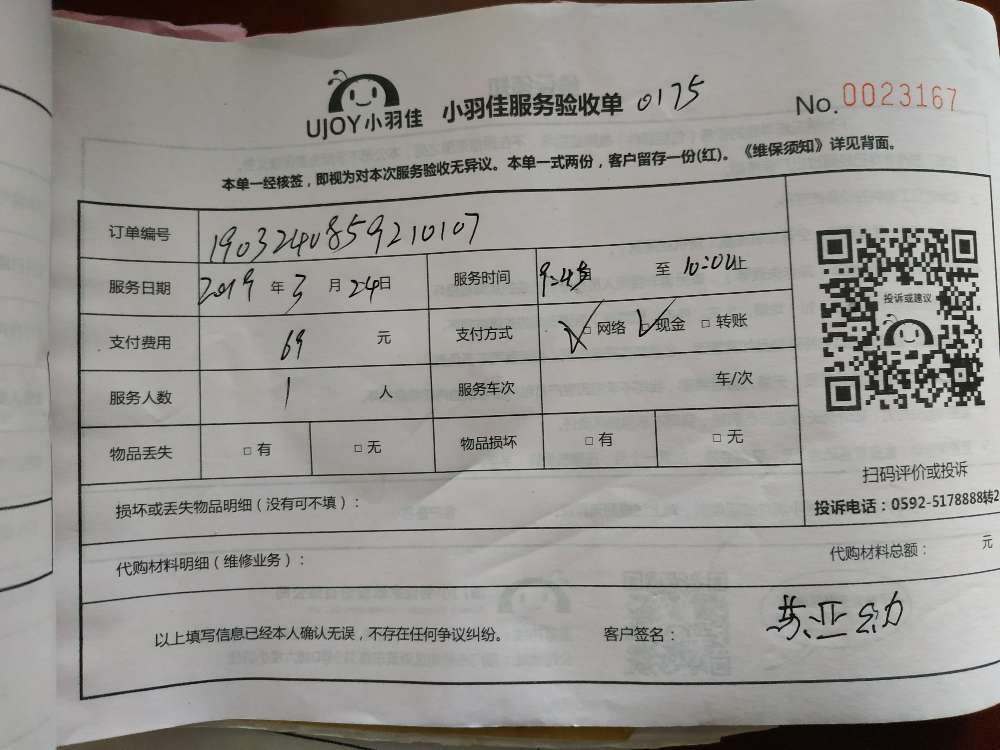 UJOY小羽佳 小羽佳服务验收单 0175 No.0023167
本单一经核签，即视为对本次服务验收无异议。本单一式两份，客户留存一份(红)。《维保须知》详见背面。
订单编号 190324085921010​7
服务日期 2019 年 3 月 24日 服务时间 9:45 至 10:04止
支付费用 69 元 支付方式 □ 网络 □ 现金 □ 转账
服务人数 1 人 服务车次 车/次
物品丢失 □ 有 □ 无 物品损坏 □ 有 □ 无
投诉或建议
扫码评价或投诉
投诉电话：0592-5178888转2
损坏或丢失物品明细（没有可不填）：
代购材料明细（维修业务）： 代购材料总额： 元
以上填写信息已经本人确认无误，不存在任何争议纠纷。 客户签名：